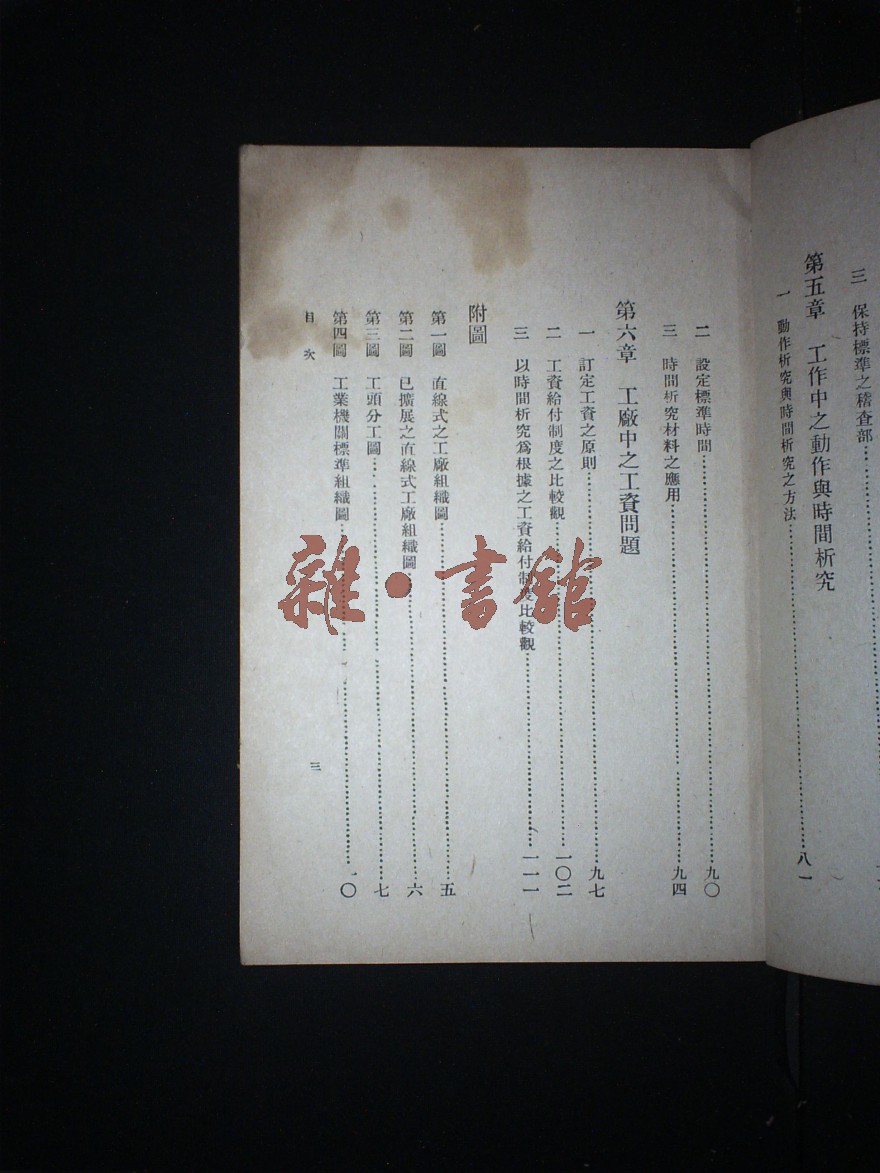 三 保持標準之稽查部
第五章 工作中之動作與時間析究
一 動作析究與時間析究之方法 八一
二 設定標準時間 九〇
三 時間析究材料之應用 九四
第六章 工廠中之工資問題
一 訂定工資之原則 九七
二 工資給付制度之比較觀 一〇二
三 以時間析究爲根據之工資給付制度比較觀 一一一
附圖
第一圖 直線式之工廠組織圖 五
第二圖 已擴展之直線式工廠組織圖 六
第三圖 工頭分工圖 七
第四圖 工業機關標準組織圖 一〇
目次 三
雜·書館